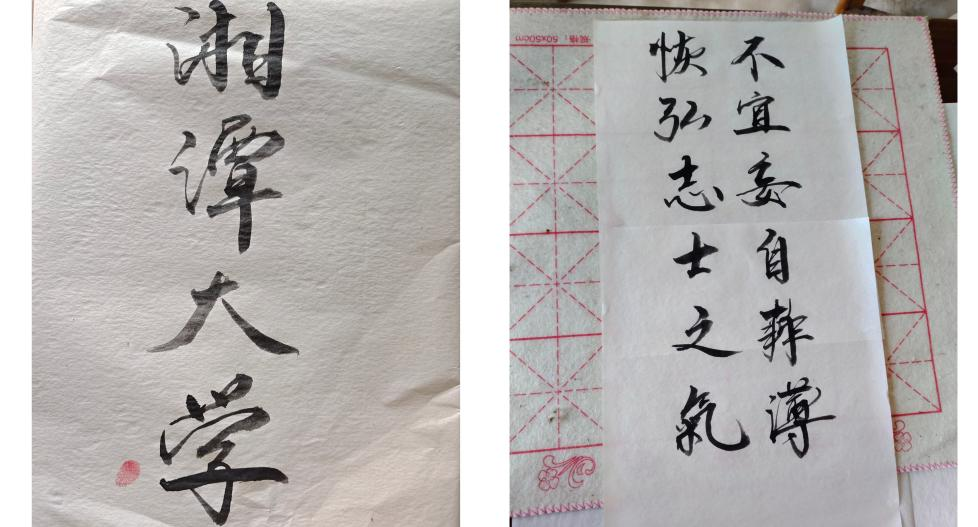 湘潭大学
恢弘志士之氣
不宜妄自菲薄
规格：50x50cm